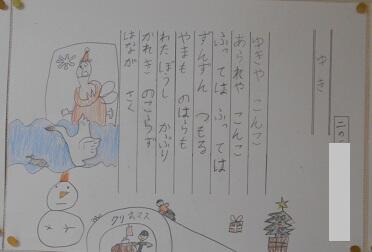 ゆき
二の
ゆきや こんこ
あられや こんこ
ふっては ふっては
ずんずん つもる
やまも のはらも
わたぼうし かぶり
かれき のこらず
はなが さく
クリスマス